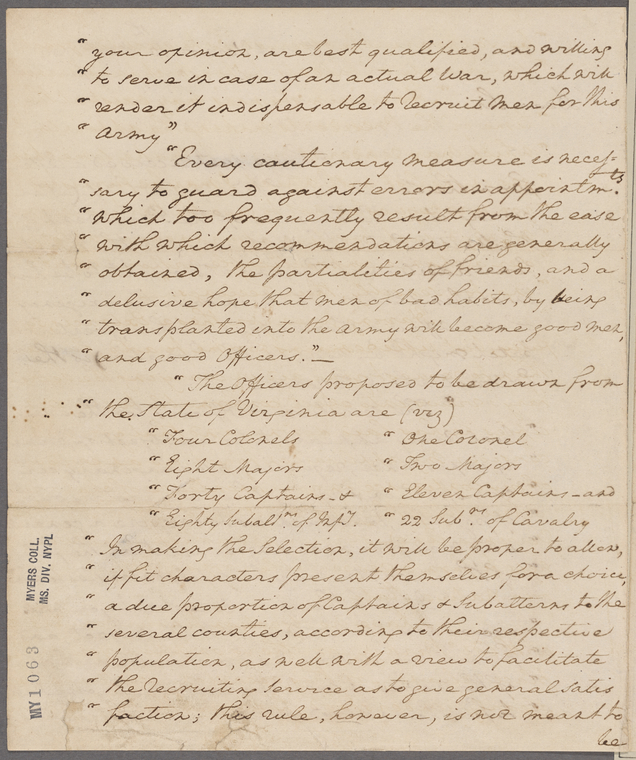 " your opinion, are best qualified, and willing
" to serve in case of an actual War, which will
" render it indispensable to recruit Men for this
" Army"
"Every cautionary measure is neces-
" sary to guard against errors in appointm.ts
" which too frequently result from the ease
" with which recommendations are generally
" obtained, the partialities of friends, and a
" delusive hope that men of bad habits, by being
" transplanted into the Army will become good men,
" and good Officers."—
" The Officers proposed to be drawn from
" the State of Virginia are (viz)
" Four Colonels " One Colonel
" Eight Majors " Two Majors
" Forty Captains - & " Eleven Captains - and
" Eighty Subalt.ns of Inf.y. " 22 Sub.ns of Cavalry
" In making the Selection, it will be proper to allow,
" if fit characters present themselves for a choice,
" a due proportion of Captains & Subalterns to the
" several counties, according to their respective
" population, as well with a view to facilitate
" the recruiting Service as to give general satis
" faction; this rule, however, is not meant to
be
MYERS COLL.
MS. DIV. NYPL
MY1063